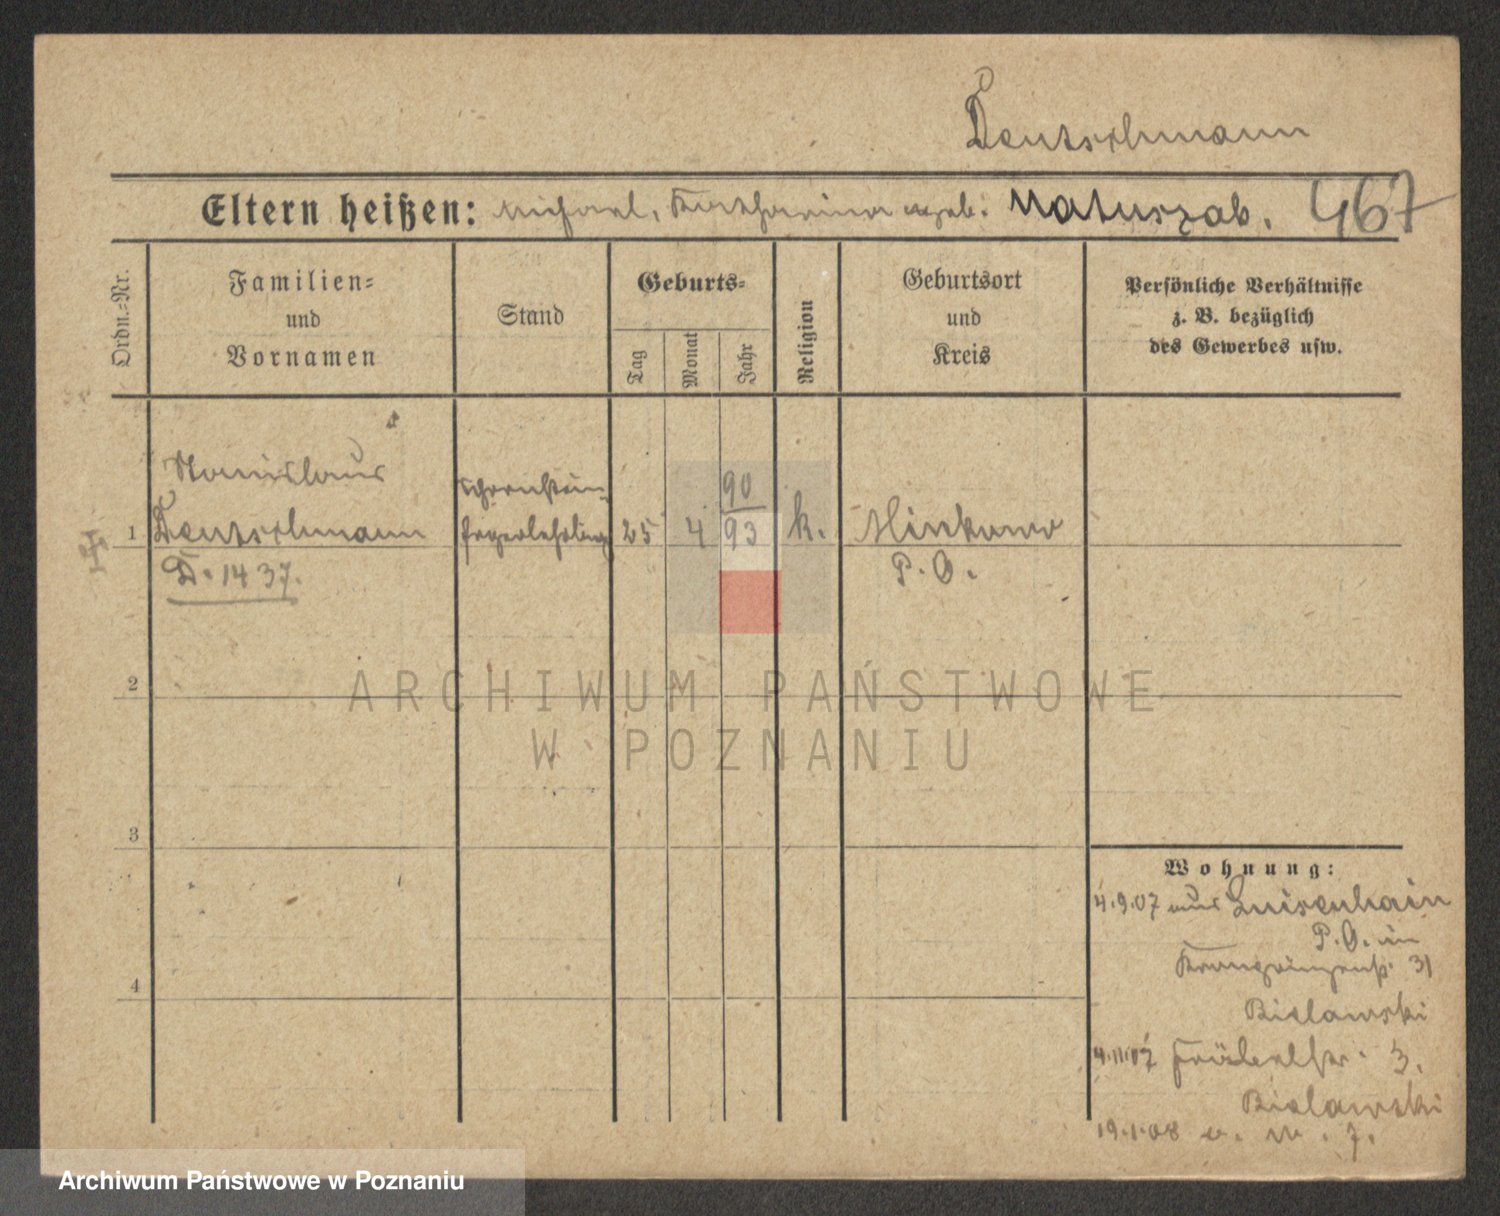 Deutschmann
Eltern heißen: Michael, Katharina geb. Matuszak. 467
Ordn.-Nr.
Familien-
und
Vornamen
Stand
Geburts-
Tag
Monat
Jahr
Religion
Geburtsort
und
Kreis
Persönliche Verhältnisse
z. B. bezüglich
des Gewerbes usw.
Stanislaus
Schornstein-
90
1 Deutschmann fegerlehrling 25 4 93 k. Minkowo
D. 1437.
P. O.
2
3
4
Wohnung:
4.9.07 aus Luisenhain
P. O. in
Kronprinzenstr. 31
Bielawski
4.11.07 Fröbelstr. 3.
Bielawski
19.1.08
ARCHIWUM PAŃSTWOWE
W POZNANIU
Archiwum Państwowe w Poznaniu